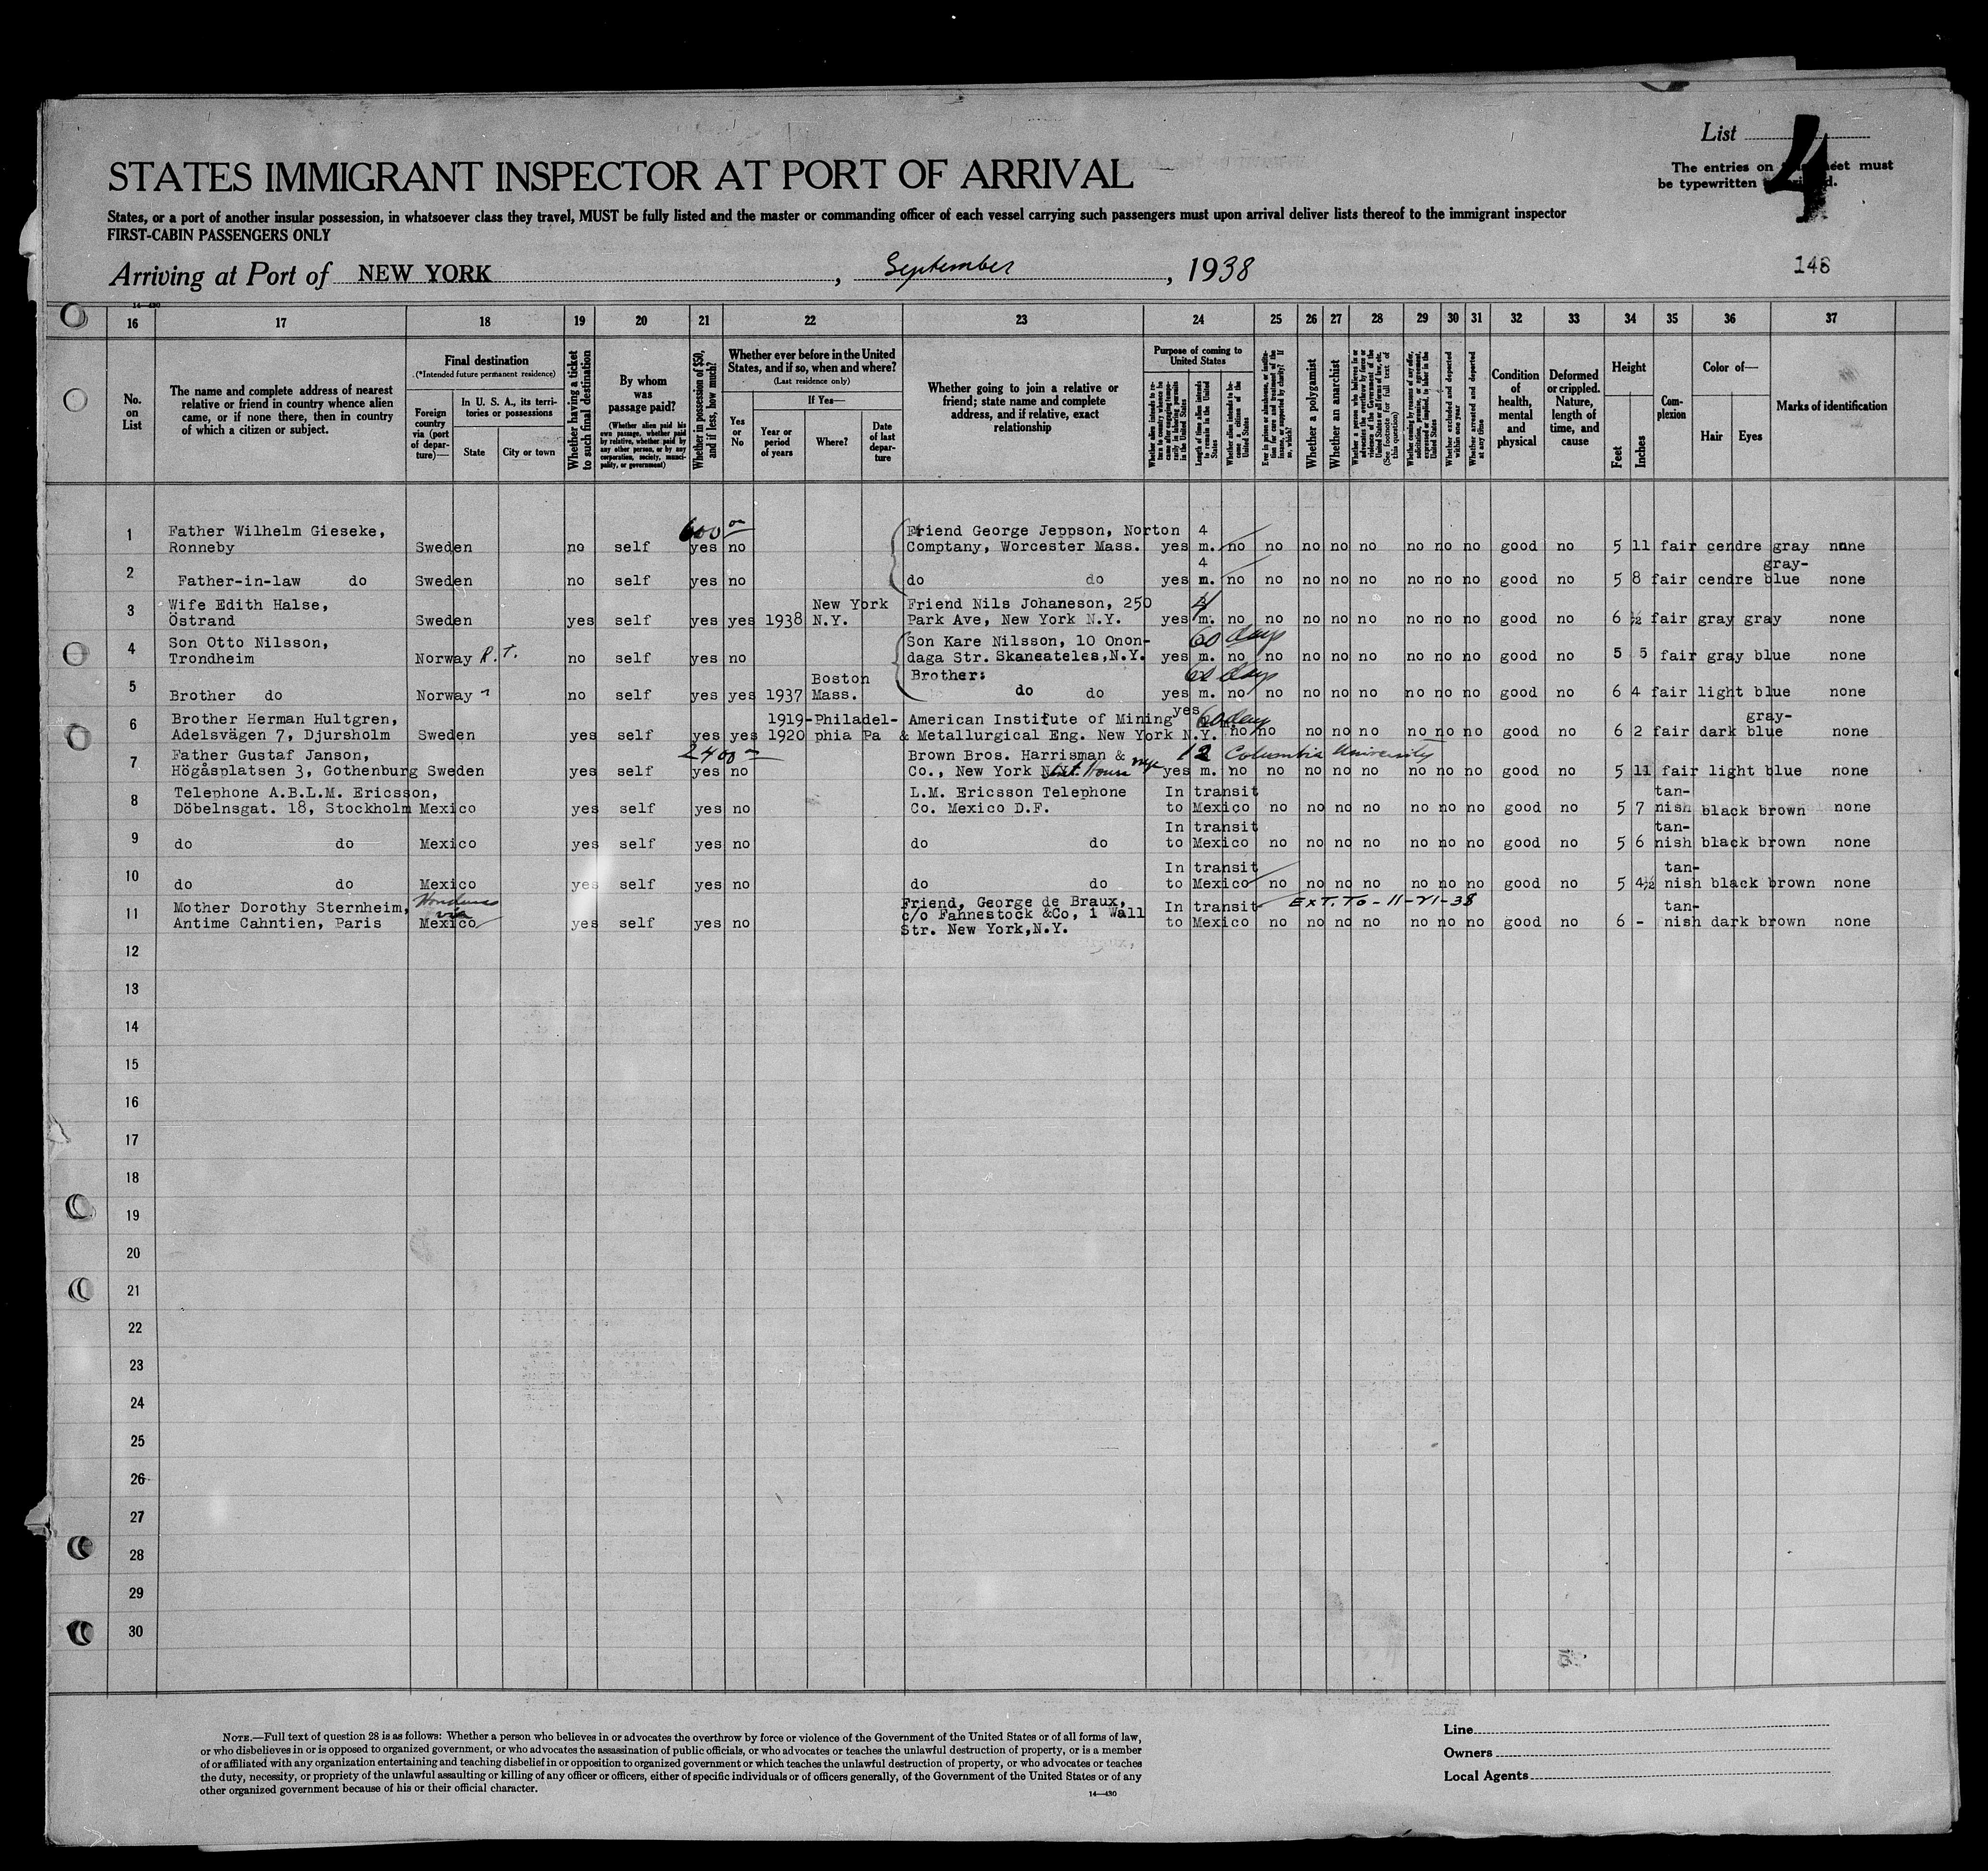 List 4
The entries on sheet must
be typewritten
STATES IMMIGRANT INSPECTOR AT PORT OF ARRIVAL
States, or a port of another insular possession, in whatsoever class they travel, MUST be fully listed and the master or commanding officer of each vessel carrying such passengers must upon arrival deliver lists thereof to the immigrant inspector
FIRST-CABIN PASSENGERS ONLY
Arriving at Port of NEW YORK, September, 1938
148
14—430
16 17 18 19 20 21 22 23 24 25 26 27 28 29 30 31 32 33 34 35 36 37
No. on List
The name and complete address of nearest relative or friend in country whence alien came, or if none there, then in country of which a citizen or subject.
Final destination
(*Intended future permanent residence)
Foreign country via (port of departure)—
In U. S. A., its territories or possessions
State
City or town
Whether having a ticket to such final destination
By whom was passage paid?
(Whether alien paid his own passage, whether paid by relative, whether paid by any other person, or by any corporation, society, municipality, or government)
Whether in possession of $50, and if less, how much?
Whether ever before in the United States, and if so, when and where?
(Last residence only)
Yes or No
If Yes—
Year or period of years
Where?
Date of last departure
Whether going to join a relative or friend; state name and complete address, and if relative, exact relationship
Purpose of coming to United States
Length of time alien intends to remain in the United States
Whether alien intends to become a citizen of the United States
Whether a polygamist
Whether an anarchist
(See footnote for full text of this question)
Whether excluded and deported within one year
Whether arrested and deported at any time
Condition of health, mental and physical
Deformed or crippled. Nature, length of time, and cause
Height
Feet
Inches
Complexion
Color of—
Hair
Eyes
Marks of identification
600 00
1 Father Wilhelm Gieseke, Friend George Jeppson, Norton 4
Ronneby Sweden no self yes no Comptany, Worcester Mass. yes m. no no no no no no no no good no 5 11 fair cendre gray none
4 gray-
2 Father-in-law do Sweden no self yes no do do yes m. no no no no no no no no good no 5 8 fair cendre blue none
3 Wife Edith Halse, New York Friend Nils Johaneson, 250 4
Östrand Sweden yes self yes yes 1938 N.Y. Park Ave, New York N.Y. yes m. no no no no no no no no good no 6 ½ fair gray gray none
4 Son Otto Nilsson, Son Kare Nilsson, 10 Onon- 60 days
Trondheim Norway R.T. no self yes no daga Str. Skaneateles,N.Y. yes m. no no no no no no no no good no 5 5 fair gray blue none
5 Boston Brother: 60 days
Brother do Norway " no self yes yes 1937 Mass. do do yes m. no no no no no no no no good no 6 4 fair light blue none
6 Brother Herman Hultgren, 1919- Philadel- American Institute of Mining yes 60 days gray-
Adelsvägen 7, Djursholm Sweden yes self yes yes 1920 phia Pa & Metallurgical Eng. New York N.Y. no no no no no no no no good no 6 2 fair dark blue none
2400 00
7 Father Gustaf Janson, Brown Bros. Harrisman & 12 Columbia University
Högåsplatsen 3, Gothenburg Sweden yes self yes no Co., New York N.Y. Int. House nyc yes m. no no no no no no no no good no 5 11 fair light blue none
8 Telephone A.B.L.M. Ericsson, L.M. Ericsson Telephone In transit tan-
Döbelnsgat. 18, Stockholm Mexico yes self yes no Co. Mexico D.F. to Mexico no no no no no no no good no 5 7 nish black brown none
In transit tan-
9 do do Mexico yes self yes no do do to Mexico no no no no no no no good no 5 6 nish black brown none
In transit tan-
10 do do Mexico yes self yes no do do to Mexico no no no no no no no good no 5 4½ nish black brown none
Honduras via
11 Mother Dorothy Sternheim, Friend, George de Braux, In transit EXT. TO - 11-21-38 tan-
Antime Cahntien, Paris Mexico yes self yes no c/o Fahnestock &Co, 1 Wall to Mexico no no no no no no no good no 6 - nish dark brown none
Str. New York,N.Y.
12
13
14
15
16
17
18
19
20
21
22
23
24
25
26
27
28
29
30
NOTE.—Full text of question 28 is as follows: Whether a person who believes in or advocates the overthrow by force or violence of the Government of the United States or of all forms of law,
or who disbelieves in or is opposed to organized government, or who advocates the assassination of public officials, or who advocates or teaches the unlawful destruction of property, or is a member
of or affiliated with any organization entertaining and teaching disbelief in or opposition to organized government or which teaches the unlawful destruction of property, or who advocates or teaches
the duty, necessity, or propriety of the unlawful assaulting or killing of any officer or officers, either of specific individuals or of officers generally, of the Government of the United States or of any
other organized government because of his or their official character.
14—430
Line
Owners
Local Agents